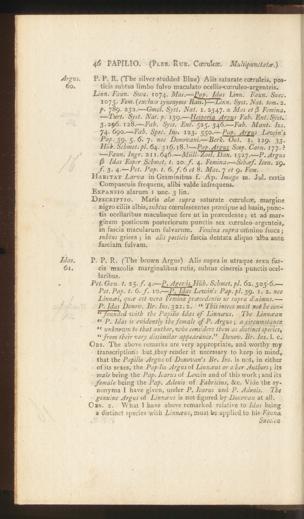 46 PAPILIO. (Pleb. Rur. Cœruleæ. Multipunctatæ.)
Argus. P. P. R. (The silver studded Blue) Aliis saturate cœruleis, pos-
60. ticis subtus limbo fulvo maculato ocellis-cœruleo-argenteis.
Linn. Faun. Suec. 1074. Mas.—Pap. Idas Linn. Faun. Suec.
1075. Fem. (excluso synonymo Raii.)—Linn. Syst. Nat. tom. 2.
p. 789. 232.—Gmel. Syst. Nat. 1. 2347. α Mas et β Femina.
—Turt. Syst. Nat. p. 139.—Hesperia Argus Fab. Ent. Syst.
3. 296. 128.—Fab. Syst. Ent. 525. 346.—Fab. Mant. Ins.
74. 690.—Fab. Spec. Ins. 123. 550.—Pap. Argus Lewin's
Pap. 39. 5. 6. 7. nec Donovani.—Berk. Out. 1. 129. 33.
Hüb. Schmet. pl. 64. 316. 18.?—Pap. Argus Scop. Carn. 177.?
—Faun. Ingr. 211. 646.—Müll. Zool. Dan. 1327.—P. Argus
β Idas Esper Schmet. 1. 20. f. 4. Femina.—Schæf. Icon. 29.
f. 3. 4.—Pet. Pap. 1. 6. f. 6 et 8. Mas, 7 et 9. Fem.
Habitat Larva in Graminibus f. Ap. Imago m. Jul. certis
Campascuis frequens, alibi valde infrequens.
Expansio alarum 1 unc. 3 lin.
Descriptio. Maris alæ supra saturate cœruleæ, margine
nigro ciliis albis, subtus cœrulescentes punctisque ad basin, punc-
tis ocellaribus maculisque fere ut in præcedente; et ad mar-
ginem posticum posteriorum punctis sex cœruleo-argenteis,
in fascia macularum fulvarum. Femina supra omnino fusca;
subtus grisea; in alis posticis fascia dentata aliquo alba ante
fasciam fulvam.
Idas. P. P. R. (The brown Argus) Alis supra in utraque sexu fus-
61. cis maculis marginalibus rufis, subtus cinereis punctis ocel-
laribus.
Pet. Gen. t. 25. f. 4.—P. Agestis Hüb. Schmet. pl. 62. 305-6.—
Pet. Pap. t. 6. f. 10.—P. Idas Lewin's Pap. pl. 39. 1. 2. nec
Linnæi, quæ est vera Femina præcedentis ut supra diximus.—
P. Idas Donov. Br. Ins. 322. 2. "This insect must not be con-
"founded with the Papilio Idas of Linnæus. The Linnæan
"P. Idas is evidently the female of P. Argus; a circumstance
"unknown to that author, who considers them as distinct species,
"from their very dissimilar appearance." Donov. Br. Ins. l. c.
Obs. The above remarks are very appropriate, and worthy my
transcription: but they render it necessary to keep in mind,
that the Papilio Argus of Donovan's Br. Ins. is not, in either
of its sexes, the Papilio Argus of Linnæus or other Authors; its
male being the Pap. Icarus of Lewin and of this work; and its
female being the Pap. Adonis of Fabricius, &c. Vide the sy-
nonyma I have given, under P. Icarus and P. Adonis. The
genuine Argus of Linnæus is not figured by Donovan at all.
Obs. 2. What I have above remarked relative to Idas being
a distinct species with Linnæus, must be applied to his Fauna
Suecica